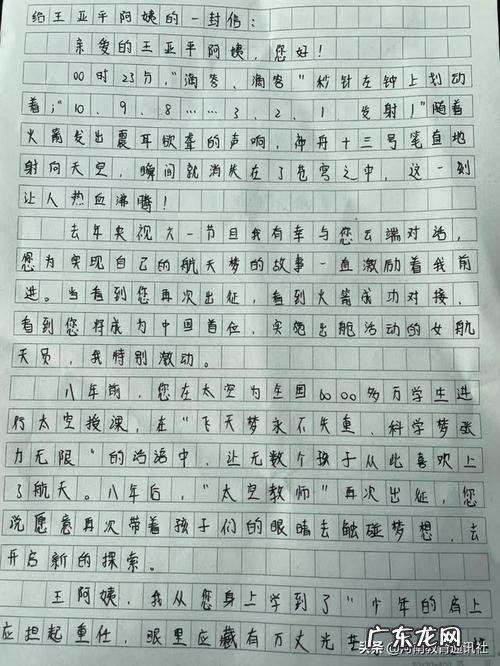 给王亚平阿姨的一封信：
亲爱的王亚平阿姨，您好！
00时23分，“滴答、滴答”秒针在钟上划动
着；“10、9、8……3、2、1、发射！”随着
火箭发出震耳欲聋的声响，神舟十三号笔直地
射向天空，瞬间就消失在了苍穹之中，这一刻
让人热血沸腾！
去年央视六一节目我有幸与您云端对话，
您为实现自己的航天梦的故事一直激励着我前
进。当看到您再次出征，看到火箭成功对接、
看到您将成为中国首位，实施出舱活动的女航
天员，我特别激动。
八年前，您在太空为全国6000多万学生进
行太空授课，在“飞天梦永不失重，科学梦张
力无限”的话语中，让无数个孩子从此喜欢上
了航天。八年后，“太空教师”再次出征，您
说愿意再次带着孩子们的眼睛去触碰梦想，去
开启新的探索。
王阿姨，我从您身上学到了“少年的肩上
应担起重任，眼里应藏有万丈光
头条 @河南教育通讯社
广东龙网